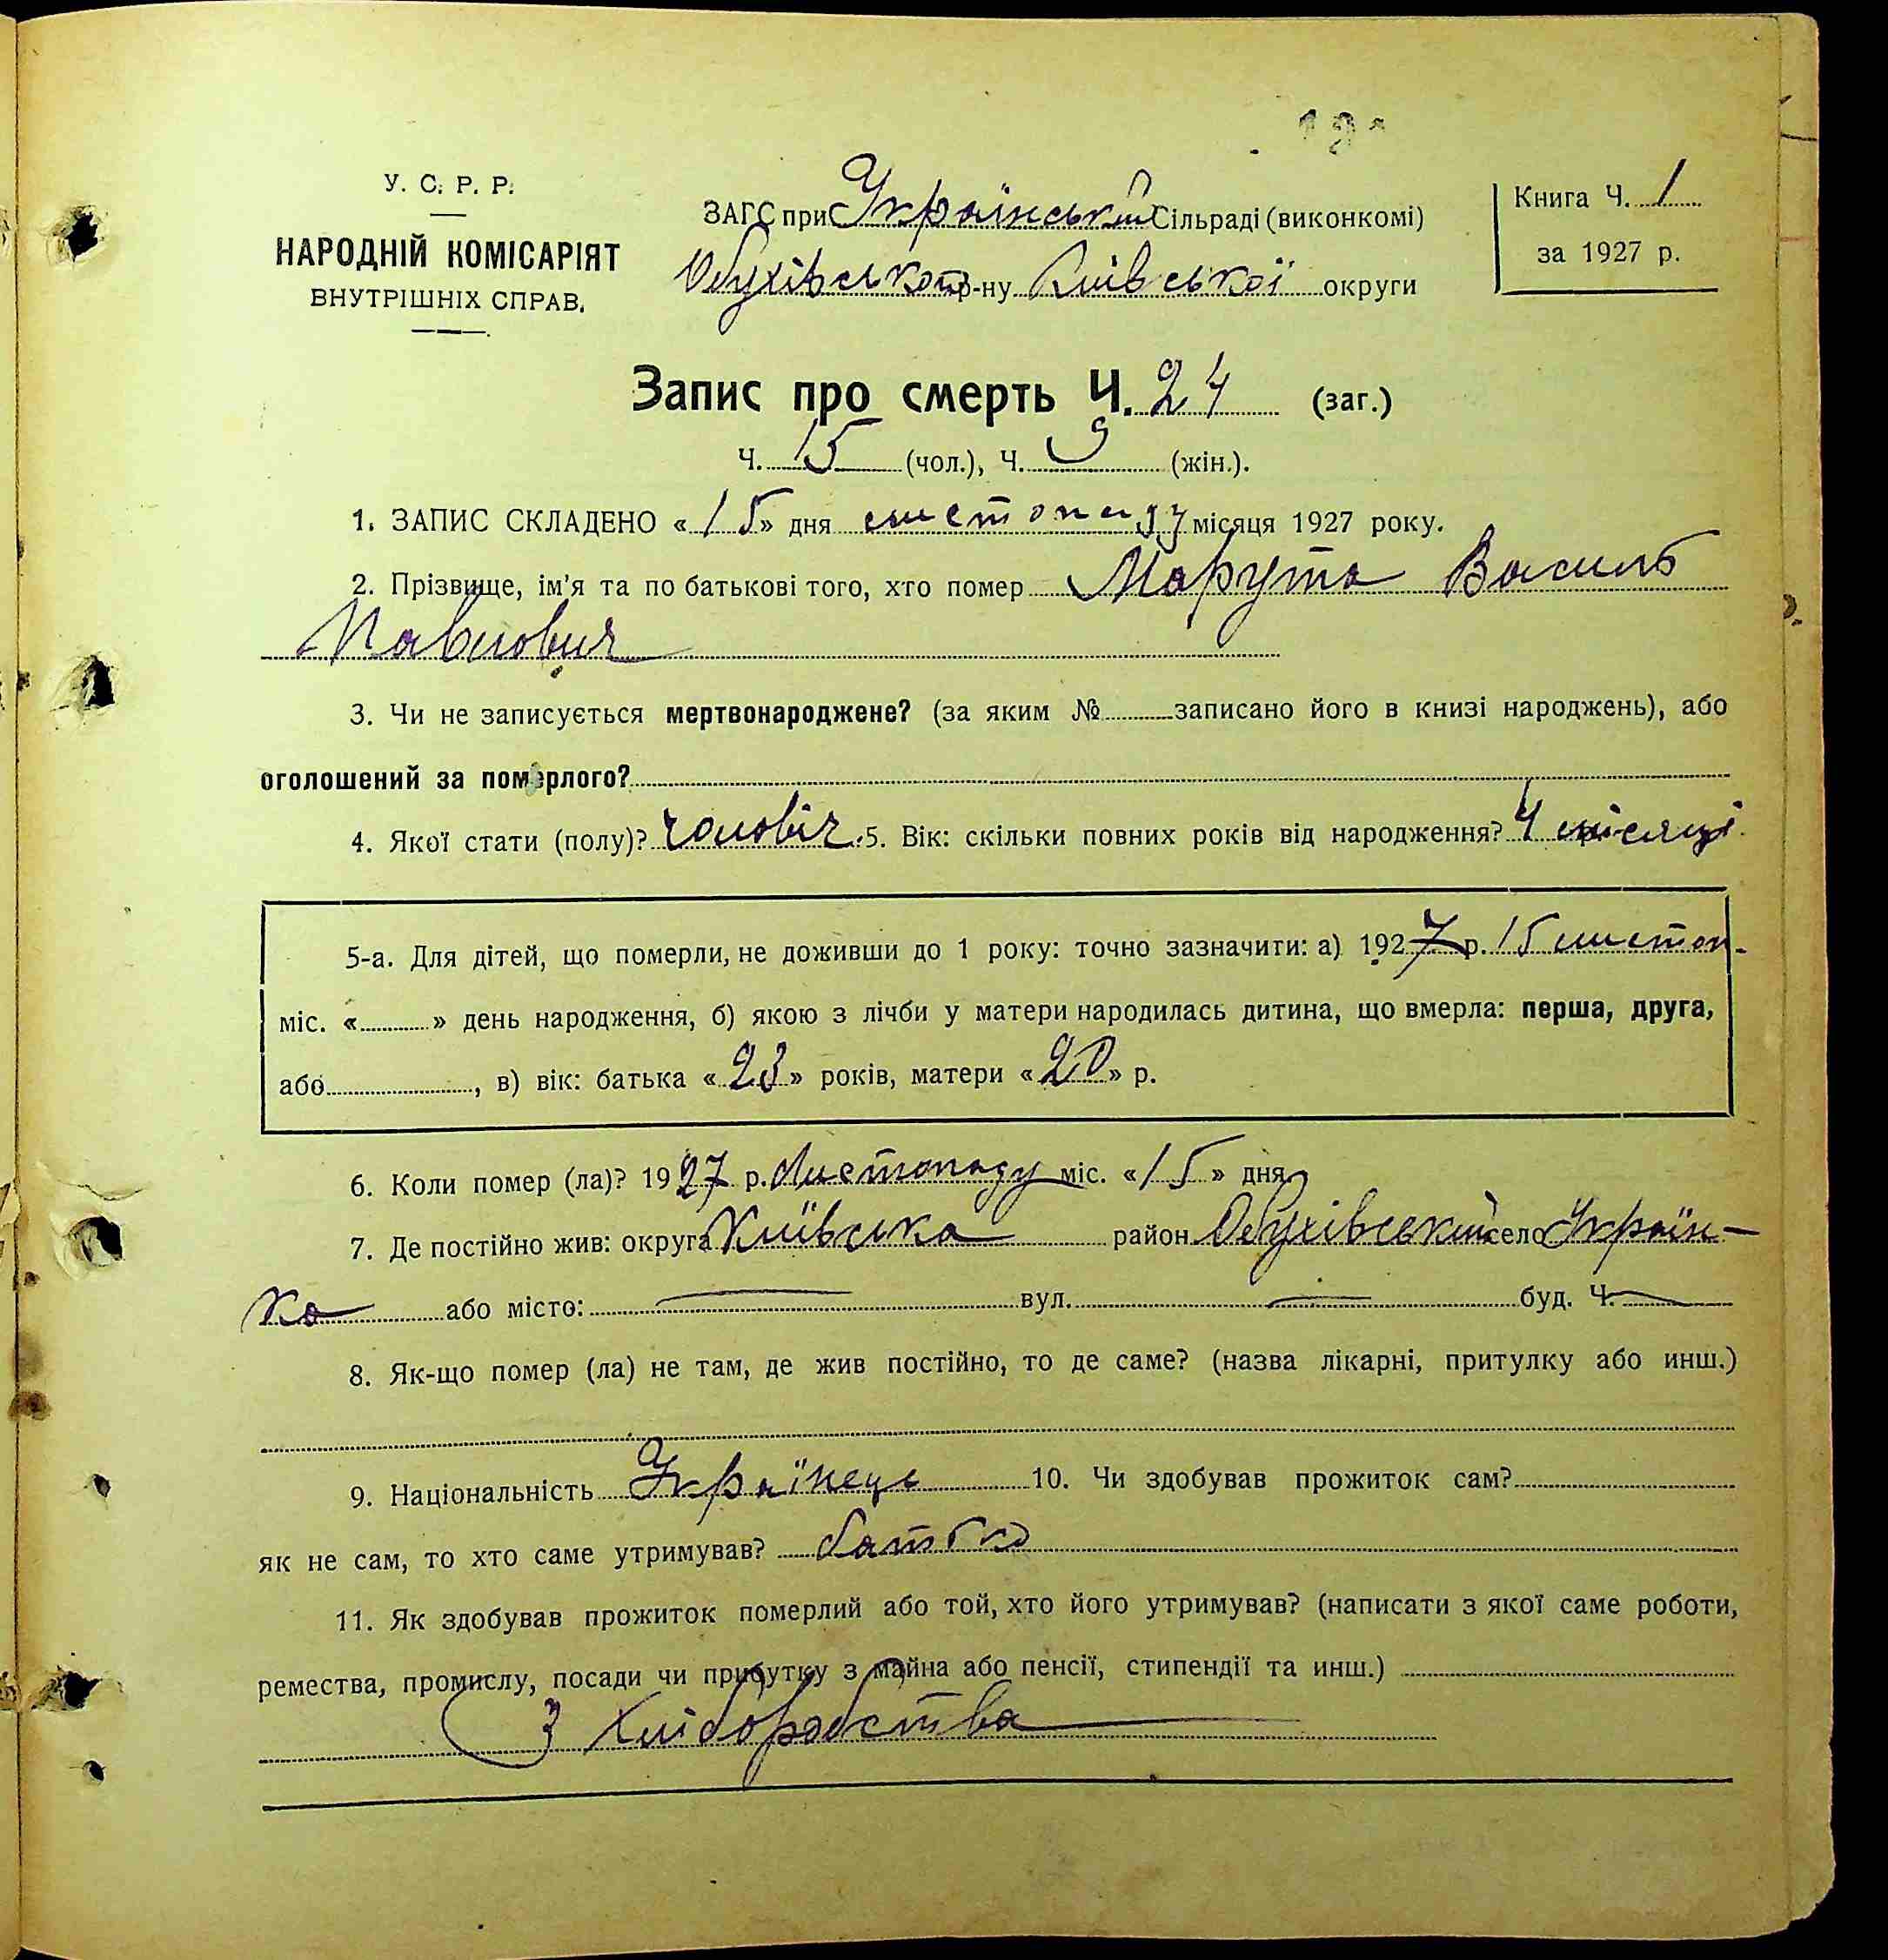 У. С. Р. Р.
НАРОДНІЙ КОМІСАРІЯТ
ВНУТРІШНІХ СПРАВ.
ЗАГС при Українській Сільраді (виконкомі)
Обухівського р-ну Київської округи
Книга Ч. 1
за 1927 р.
Запис про смерть Ч. 24 (заг.)
Ч. 15 (чол.), Ч. 9 (жін.).
1. ЗАПИС СКЛАДЕНО «15» дня листопаду місяця 1927 року.
2. Прізвище, ім'я та по батькові того, хто помер Марута Василь
Павлович
3. Чи не записується мертвонароджене? (за яким № записано його в книзі народжень), або
оголошений за померлого?
4. Якої стати (полу)? чоловіч. 5. Вік: скільки повних років від народження? 4 місяці
5-а. Для дітей, що померли, не доживши до 1 року: точно зазначити: а) 1927 р. 15 листоп.
міс. « » день народження, б) якою з лічби у матери народилась дитина, що вмерла: перша, друга,
або , в) вік: батька «23» років, матери «20» р.
6. Коли помер (ла)? 1927 р. Листопаду міс. «15» дня
7. Де постійно жив: округа Київська район Обухівський село Україн-
ка або місто: — вул. — буд. Ч. —
8. Як-що помер (ла) не там, де жив постійно, то де саме? (назва лікарні, притулку або инш.)
9. Національність Українець 10. Чи здобував прожиток сам?
як не сам, то хто саме утримував? батько
11. Як здобував прожиток померлий або той, хто його утримував? (написати з якої саме роботи,
ремества, промислу, посади чи прибутку з майна або пенсії, стипендії та инш.)
З хліборобства